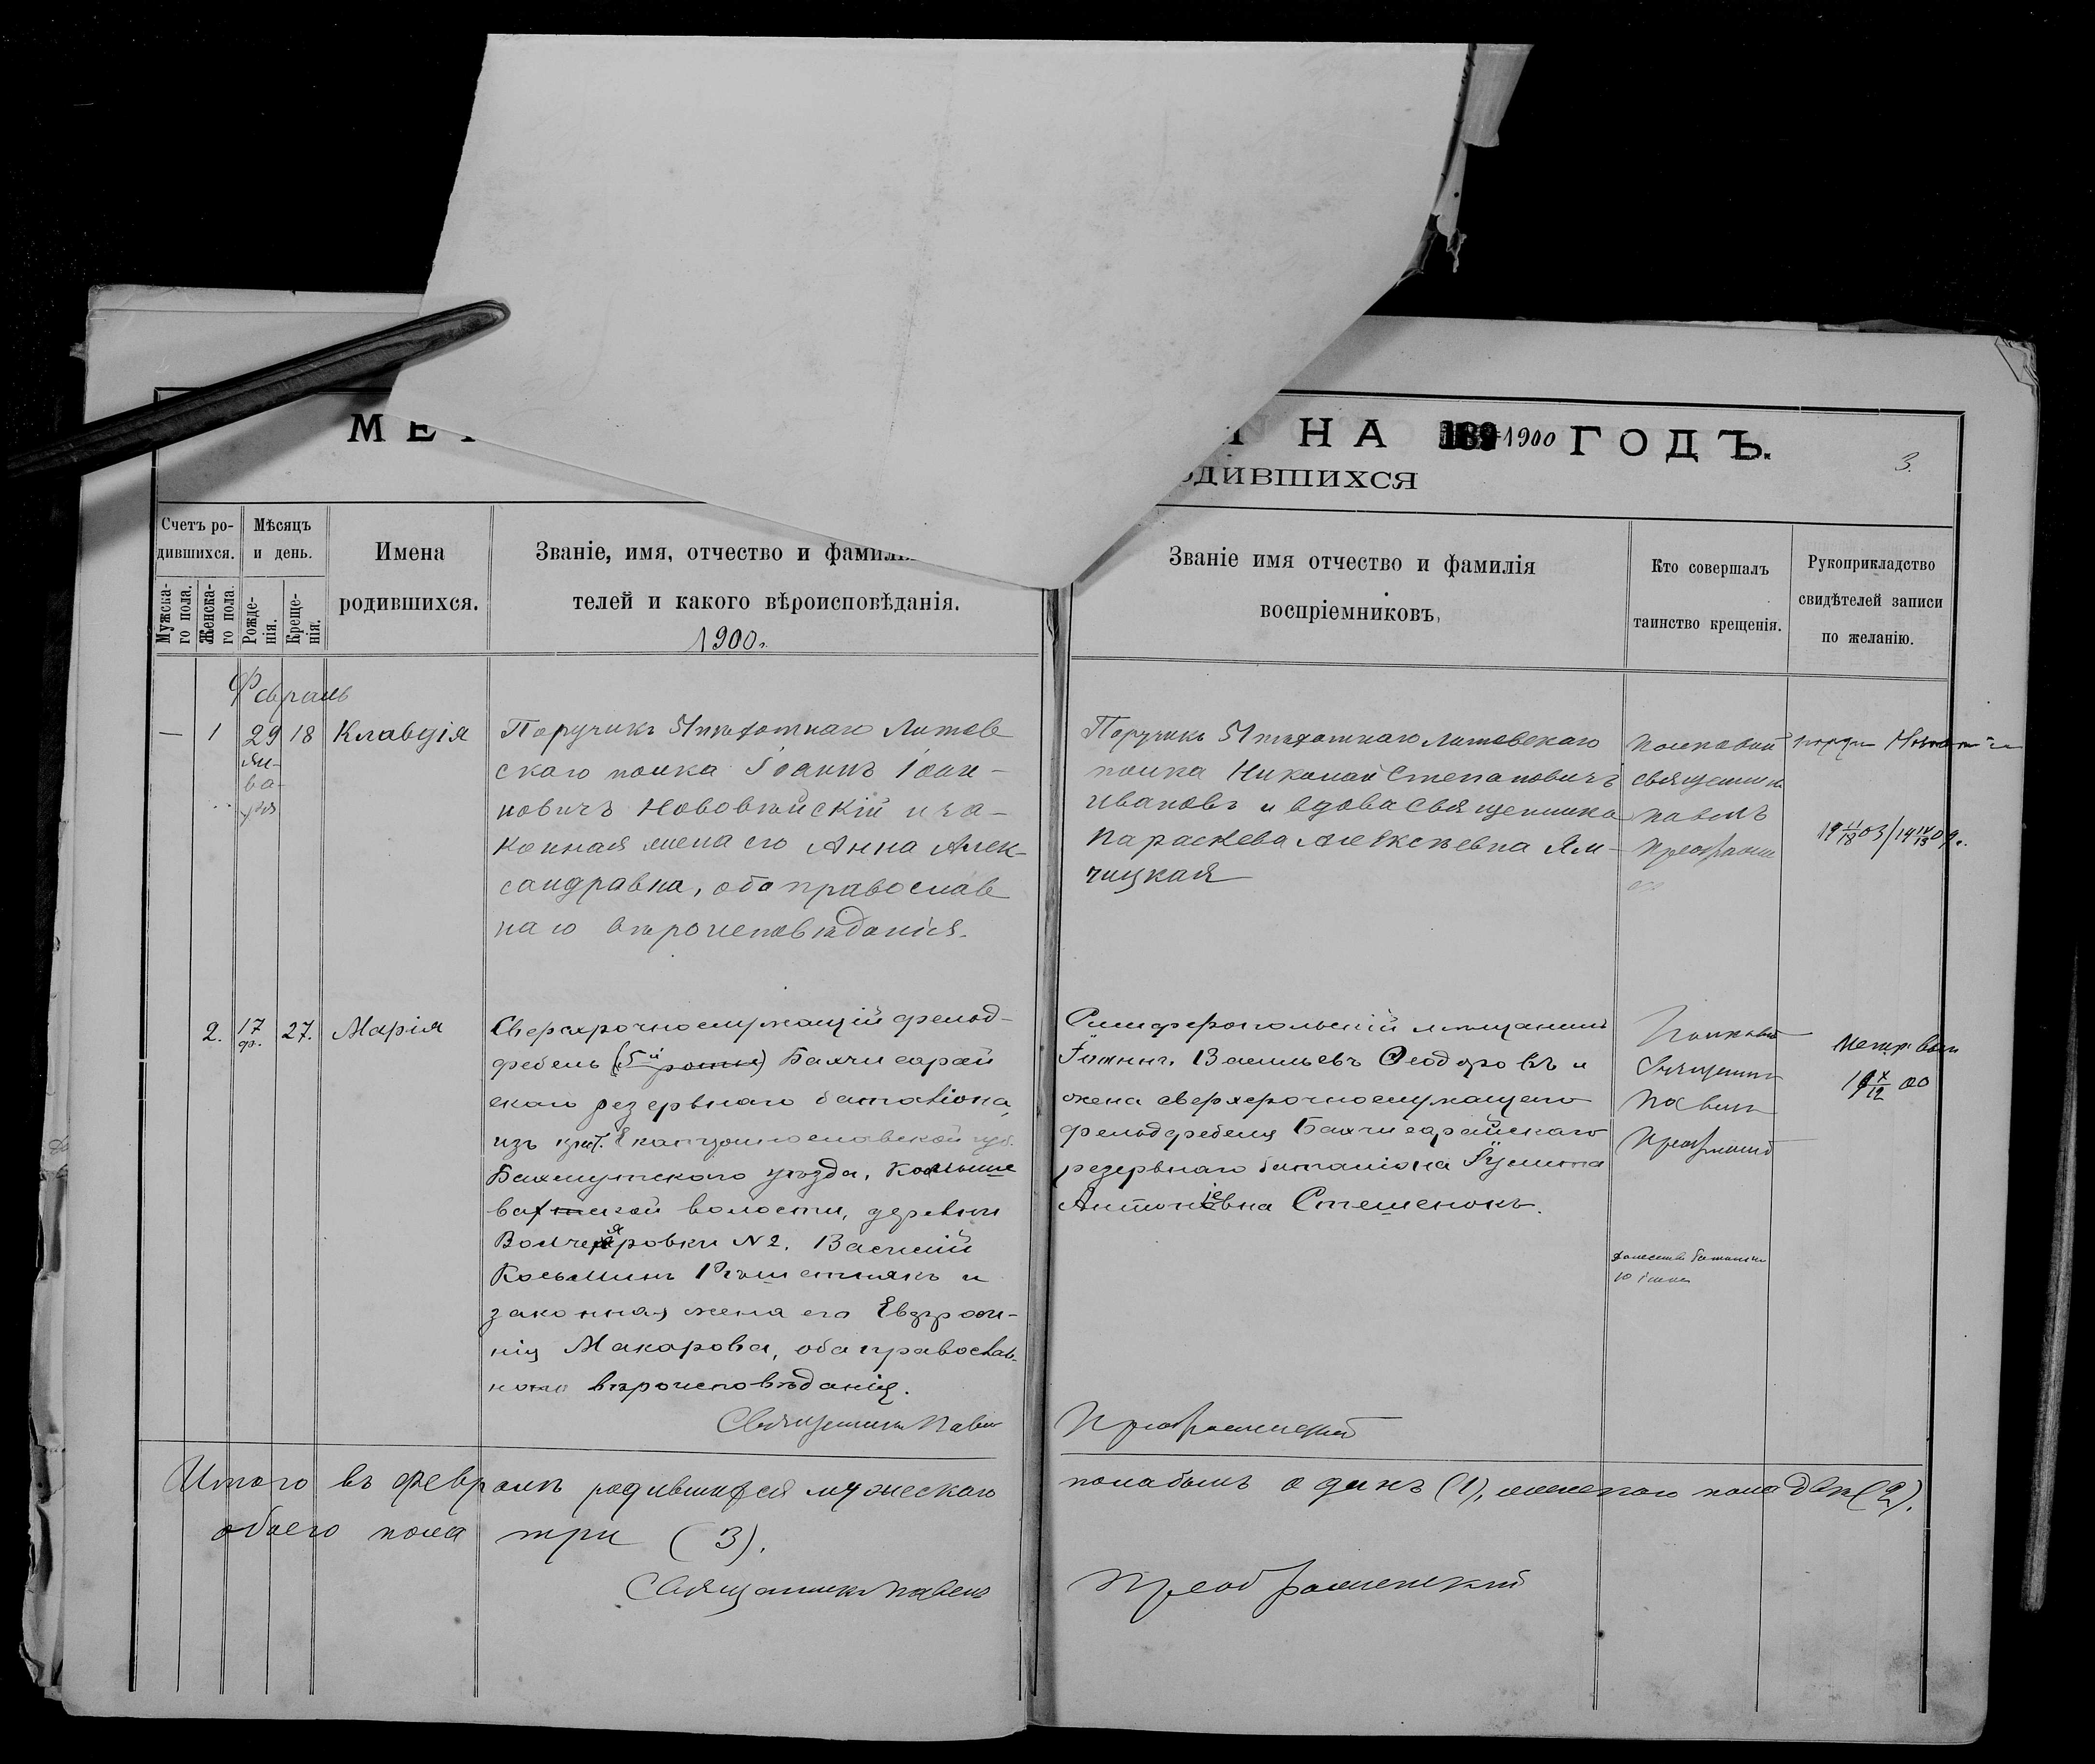 МЕ
НА 189 1900 ГОДЪ.
3.
ДИВШИХСЯ
Счетъ ро-
дившихся.
Мужска-
го пола.
Женска-
го пола.
Мѣсяцъ
и день.
Рожде-
нія.
Креще-
нія.
Имена
родившихся.
Званіе, имя, отчество и
телей и какого вѣроисповѣданія.
1900.
Званіе имя отчество и фамилія
воспріемниковъ,
Кто совершалъ
таинство крещенія.
Рукоприкладство
свидѣтелей записи
по желанію.
Февраль
— 1 29 18 Клавдія
Ян-
ва-
ря
Поручикъ 51 пѣхотнаго Литов
скаго полка Іоаннъ Іоан-
новичъ Нововѣйскій и за-
конная жена его Анна Алек-
сандравна, оба православ
наго вѣроисповѣданія.
Поручикъ 51 пѣхотнаго Литовскаго
полка Николай Степановичъ
Ивановъ и вдова Священника
Параскева Алексѣевна Ям-
чицкая
Полковой
священникъ
Павелъ
2. 17 27. Марія
ф.
Сверхсрочнослужащій фельд-
фебель (5й роты) Бахчисарай
скаго резервнаго баталіона,
изъ крест. Екатеринославской губ.
Бахмутскаго уѣзда,
волости, деревни
№ 2. Василій
Косьминъ Рѣшетнякъ и
законная жена его Евфроси-
нія Макарова, оба православ-
наго вѣроисповѣданія.
Священникъ Павелъ
Преображенскій
Симферопольскій мѣщанинъ
Васильевъ Ѳеодоровъ и
жена сверхсрочнослужащаго
фельдфебеля Бахчисарайскаго
резервнаго баталіона
Антоніевна Стешенокъ.
Полковой
Священникъ
Павелъ
Итого въ февралѣ родившихся мужескаго
пола былъ одинъ (1), женскаго пола двѣ (2),
обоего пола три (3).
Священникъ Павелъ
Преображенскій